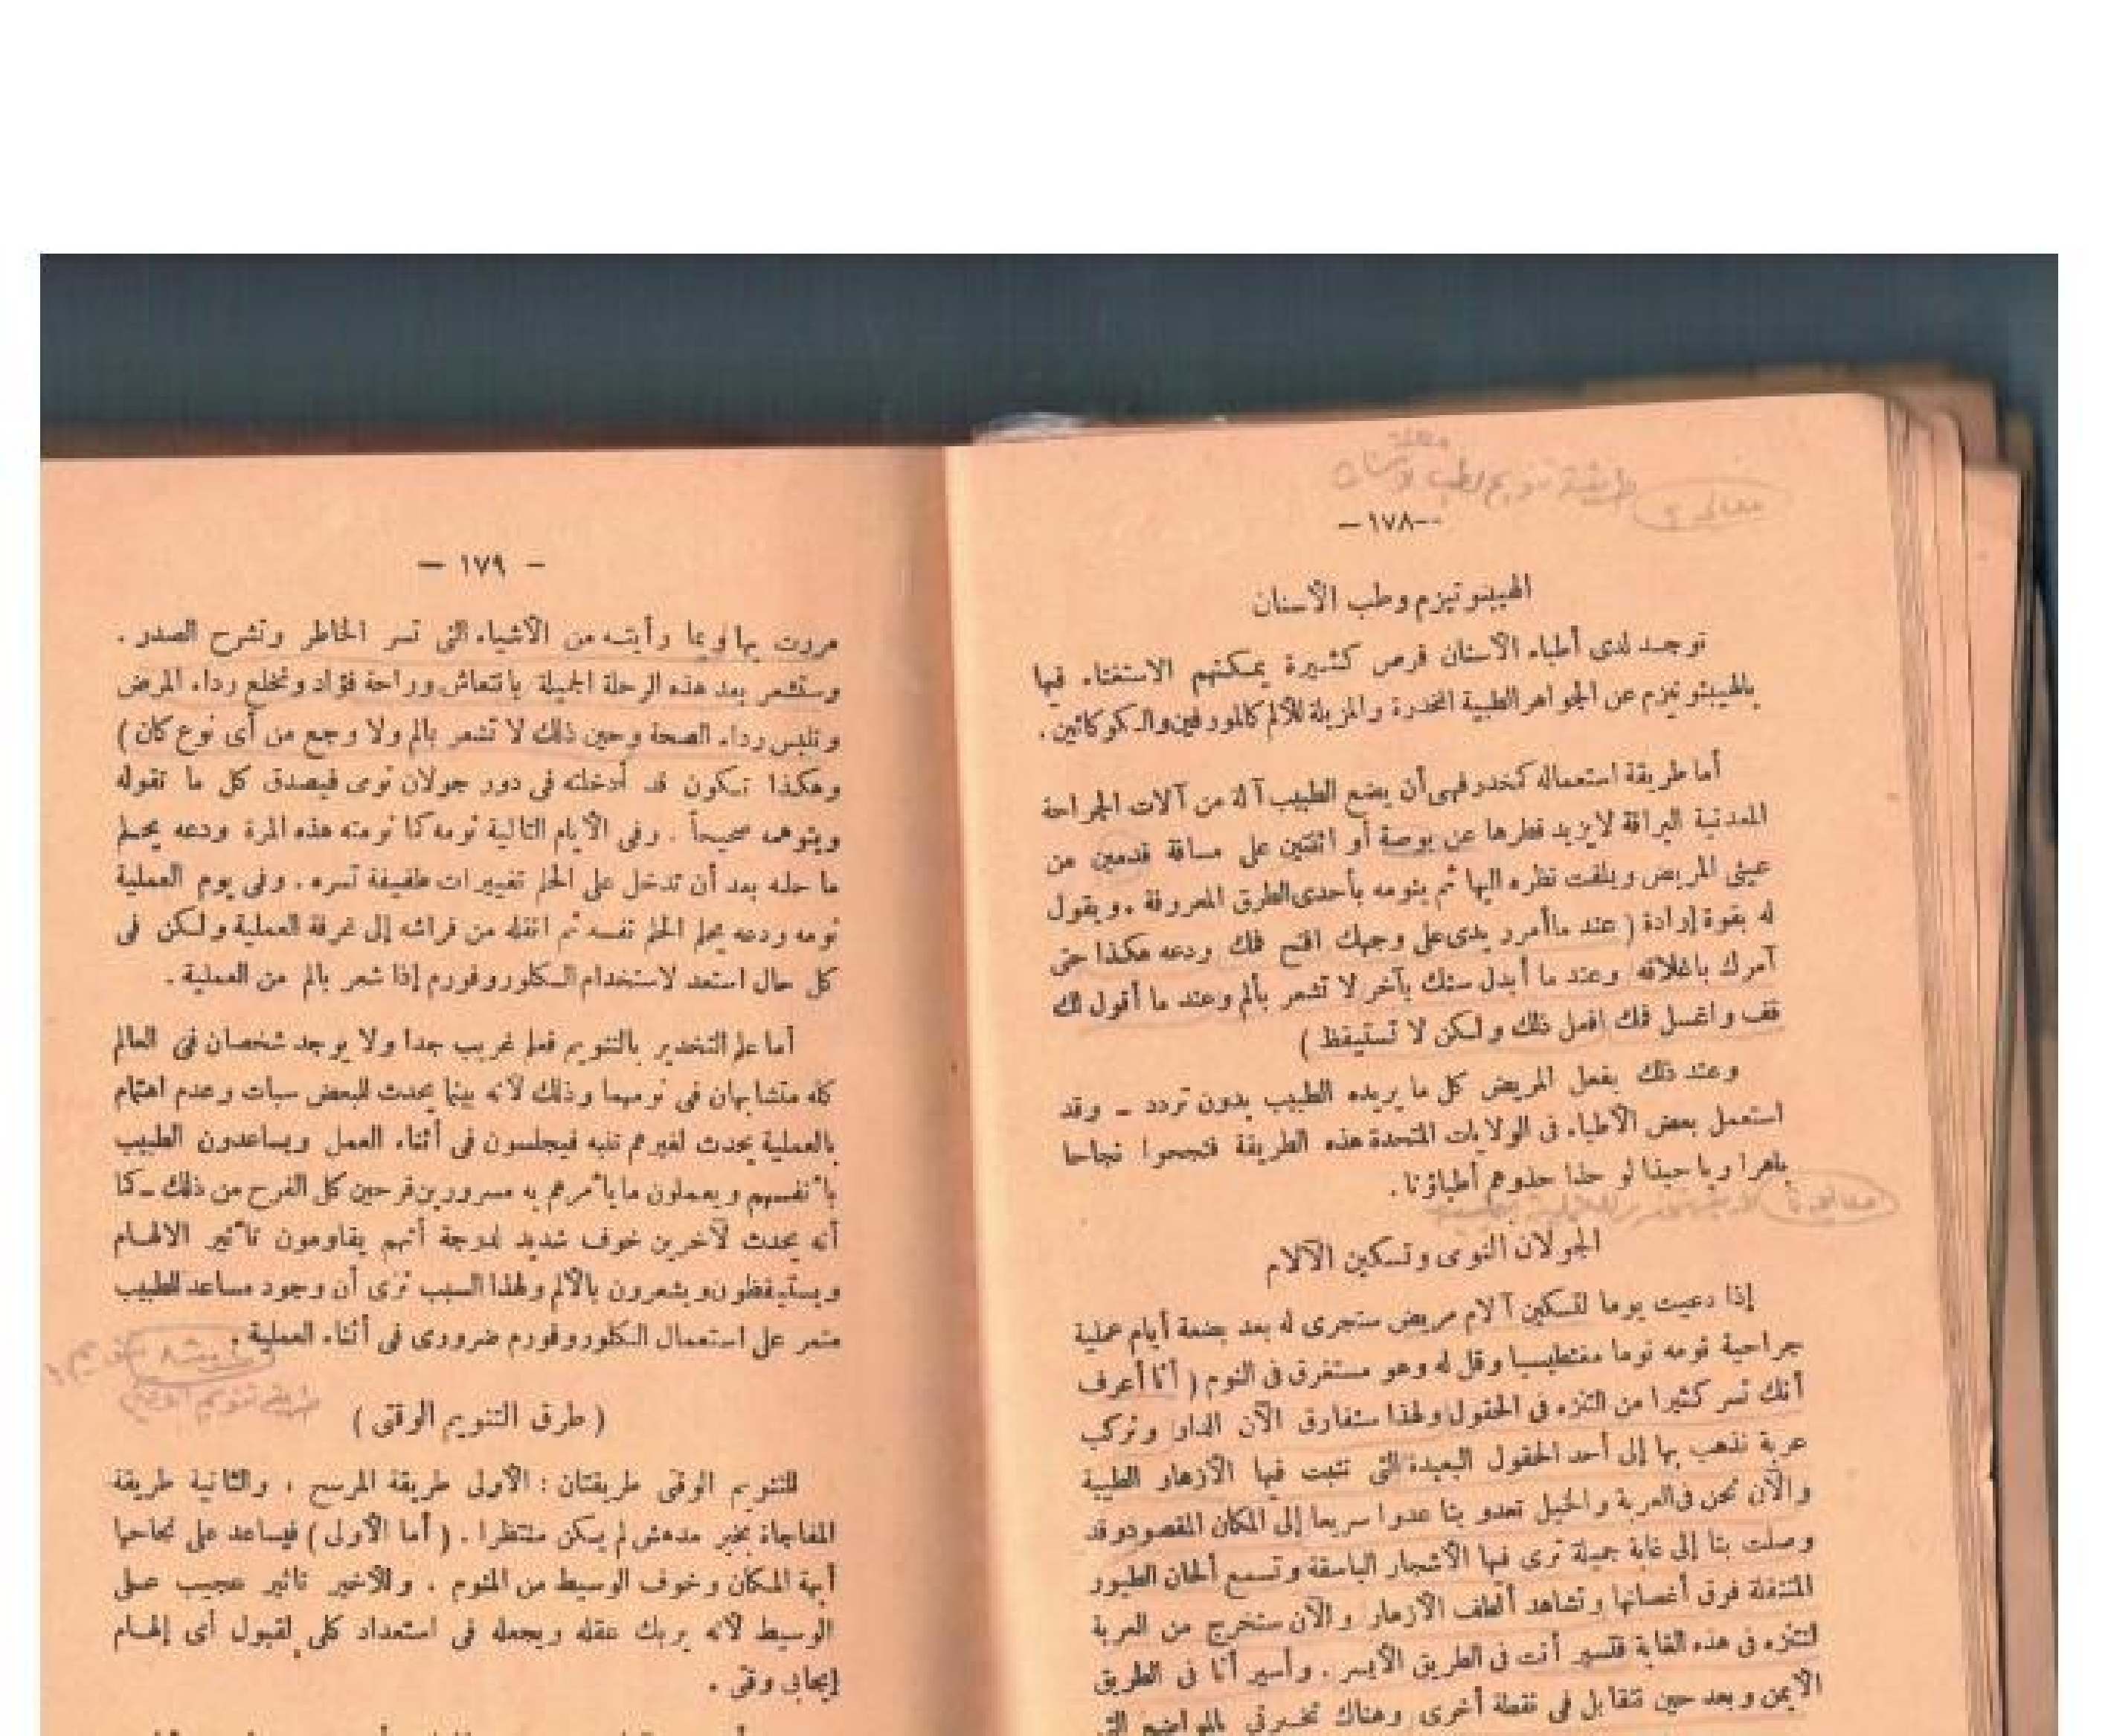 —١٧٨--
الهيبنوتيزم وطب الأسنان
توجد لدى أطباء الأسنان فرص كثيرة يمكنهم الاستغناء فيها
بالهيبنوتيزم عن الجواهر الطبية المخدرة والمزيلة للألم كالمورفين والكوكائين .
أما طريقة استعماله كمخدر فهى أن يضع الطبيب آلة من آلات الجراحة
المعدنية البراقة لا يزيد قطرها عن بوصة أو اثنتين على مسافة قدمين من
عينى المريض ويلفت نظره اليها ثم ينومه بأحدى الطرق المعروفة . ويقول
له بقوة إرادة ( عند ما أمرر يدى على وجهك افتح فمك ودعه هكذا حتى
آمرك باغلاقه وعند ما أبدل سنك بآخر لا تشعر بألم وعند ما أقول لك
قف واغسل فمك افعل ذلك ولكن لا تستيقظ )
وعند ذلك يفعل المريض كل ما يريده الطبيب بدون تردد – وقد
استعمل بعض الأطباء فى الولايات المتحدة هذه الطريقة فنجحوا نجاحا
باهرا ويا حبذا لو حذا حذوهم أطباؤنا .
الجولان النومى وتسكين الآلام
إذا دعيت يوما لتسكين آلام مريض ستجرى له بعد بضعة أيام عملية
جراحية نومه نوما مغنطيسيا وقل له وهو مستغرق فى النوم ( أنا أعرف
أنك تسر كثيرا من التنزه فى الحقول ولهذا ستفارق الآن الدار وتركب
عربة نذهب بها إلى أحد الحقول البعيدة التى تنبت فيها الأزهار الطيبة
والآن نحن فى العربة والخيل تعدو بنا عدوا سريعا إلى المكان المقصود وقد
وصلت بنا إلى غابة جميلة ترى فيها الأشجار الباسقة وتسمع ألحان الطيور
المتنقلة فوق أغصانها وتشاهد ألطف الأزهار والآن ستخرج من العربة
لتتنزه فى هذه الغابة فلتسير أنت فى الطريق الأيسر . وأسير أنا فى الطريق
الأيمن وبعد حين نتقابل فى نقطة أخرى وهناك تخبرنى بالمواضع التى
— ١٧٩ –
مررت بها وبما رأيته من الأشياء التى تسر الخاطر وتشرح الصدر .
وستشعر بعد هذه الرحلة الجميلة بانتعاش وراحة فؤاد وتخلع رداء المرض
وتلبس رداء الصحة وحين ذلك لا تشعر بالم ولا وجع من أى نوع كان )
وهكذا تكون قد أدخلته فى دور جولان نومى فيصدق كل ما تقوله
ويتوهمه صحيحاً . وفى الأيام التالية نومه كما نومته هذه المرة ودعه يحلم
ما حلمه بعد أن تدخل على الحلم تغييرات طفيفة تسره . وفى يوم العملية
نومه ودعه يحلم الحلم نفسه ثم انقله من فراشه إلى غرفة العملية ولكن فى
كل حال استعد لاستخدام الكلوروفورم إذا شعر بالم من العملية .
أما علم التخدير بالتنويم فعلم غريب جدا ولا يوجد شخصان فى العالم
كله متشابهان فى نومهما وذلك لأنه بينما يحدث للبعض سبات وعدم اهتمام
بالعملية يحدث لغيرهم تنبه فيجلسون فى أثناء العمل ويساعدون الطبيب
بأنفسهم ويعملون ما يأمرهم به مسرورين فرحين كل الفرح من ذلك – كما
أنه يحدث لآخرين خوف شديد لدرجة أنهم يقاومون تأثير الالهام
ويستيقظون ويشعرون بالألم ولهذا السبب نرى أن وجود مساعد للطبيب
متمرن على استعمال الكلوروفورم ضرورى فى أثناء العملية .
( طرق التنويم الوقتى )
للتنويم الوقتى طريقتان : الأولى طريقة المرسح ، والثانية طريقة
المفاجاة بخبر مدهش لم يكن منتظرا . ( أما الأولى ) فيساعد على نجاحها
أبهة المكان وخوف الوسيط من المنوم . وللأخير تاثير عجيب على
الوسيط لأنه يربك عقله ويجعله فى استعداد كلى لقبول أى إلهام
إيجابى وقتى .